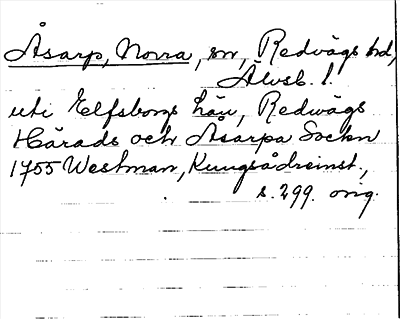 Åsarp, Norra, sn, Redvägs hd,
Älvsb. l.
uti Elfsborgs Län, Redwägs
Härads och Åsarpa Sockn
1755 Westman, Kungsådreinst.,
s. 299. orig.